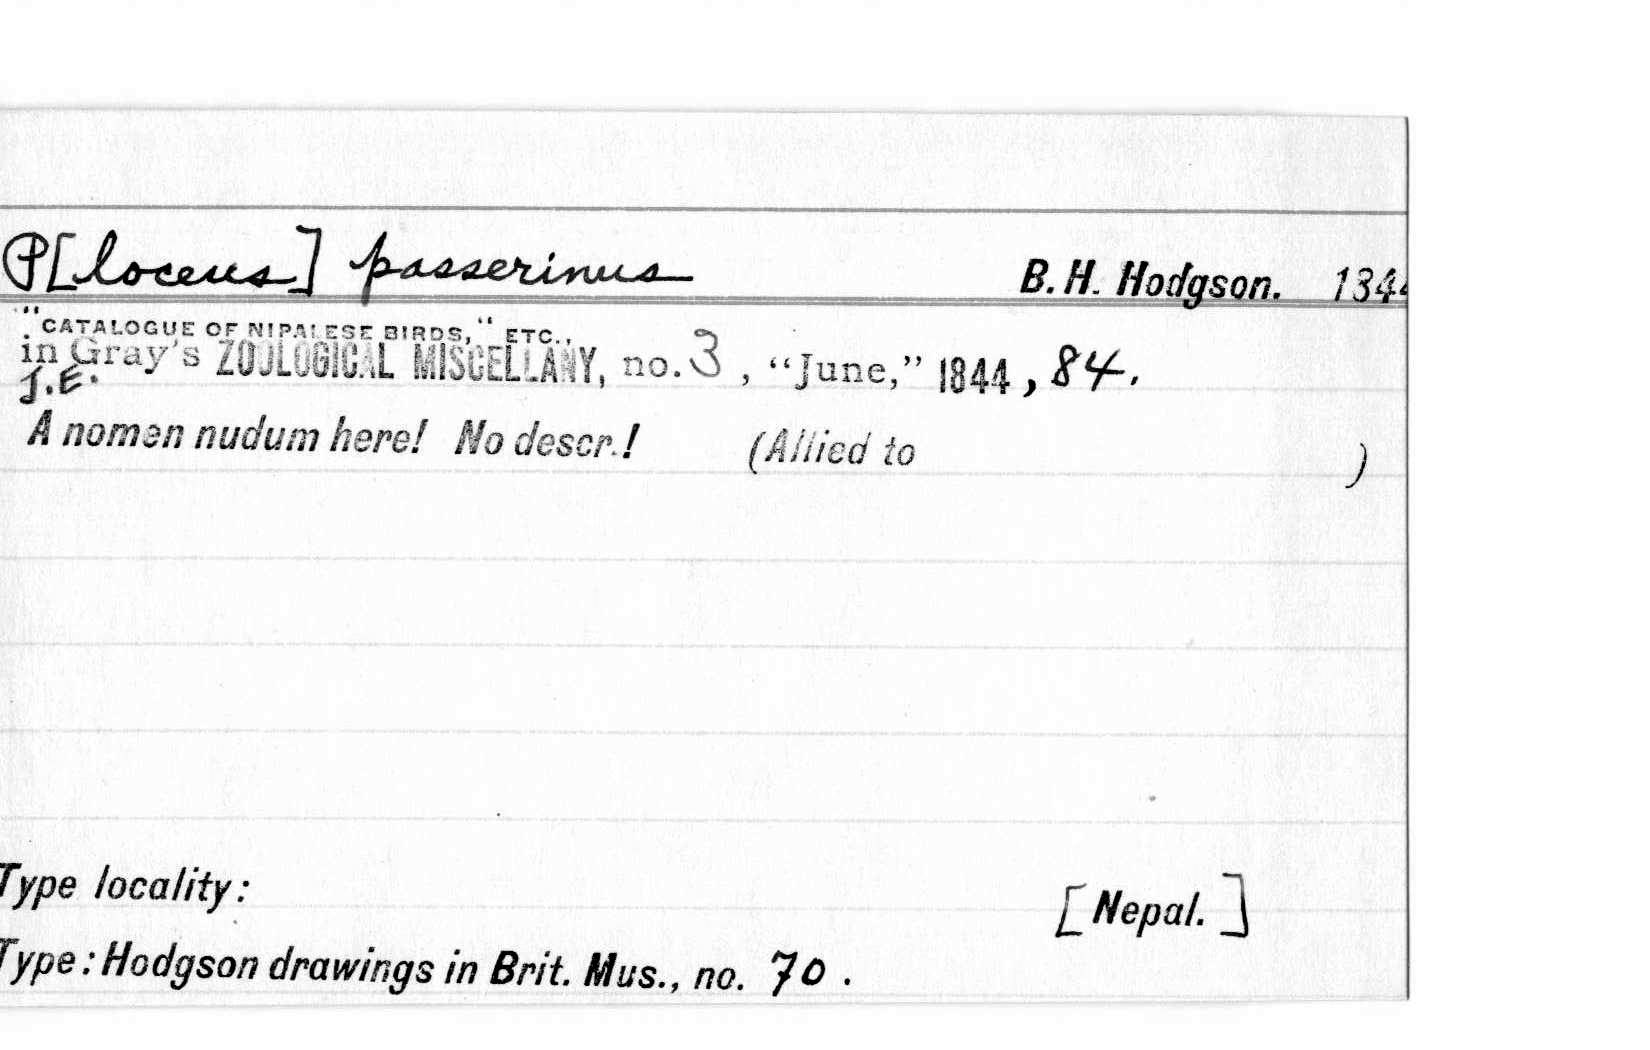 P[loceus] passerinus B. H. Hodgson. 1844
"CATALOGUE OF NIPALESE BIRDS," ETC.,
in Gray's ZOOLOGICAL MISCELLANY, no. 3, "June," 1844, 84.
J.E.
A nomen nudum here! No descr.! (Allied to )
Type locality: [Nepal.]
Type: Hodgson drawings in Brit. Mus., no. 70.